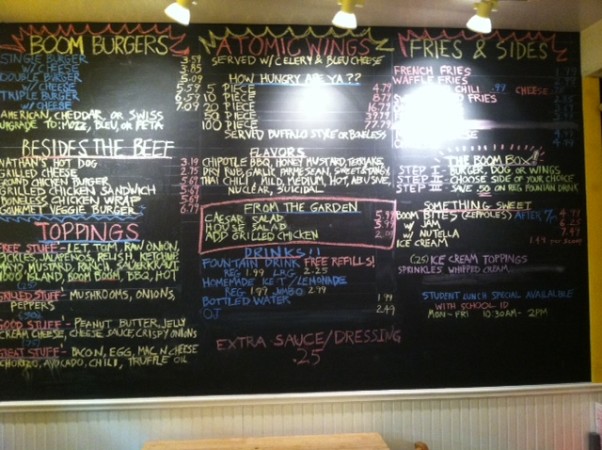 BOOM BURGERS
SINGLE BURGER 3.59
W/ CHEESE
DOUBLE BURGER 5.09
W/ CHEESE 5.59
TRIPLE BURGER 6.59
W/ CHEESE 7.09
AMERICAN, CHEDDAR, OR SWISS
UPGRADE TO: MOZZ, BLEU, OR FETA
BESIDES THE BEEF
NATHAN'S HOT DOG 3.19
GRILLED CHEESE 2.75
ROUND CHICKEN BURGER 5.69
GRILLED CHICKEN SANDWICH 5.69
BONELESS CHICKEN WRAP
GOURMET VEGGIE BURGER 6.77
TOPPINGS
FREE STUFF - LET, TOM, RAW ONION,
PICKLES, JALAPENOS, RELISH, KETCHUP
MAYO, MUSTARD, RANCH, SAUERKRAUT
1000 ISLAND, BOOM BOOM, BBQ, HOT
GRILLED STUFF - MUSHROOMS, ONIONS,
PEPPERS
GOOD STUFF - PEANUT BUTTER, JELLY
CREAM CHEESE, CHEESE SAUCE, CRISPY ONIONS
GREAT STUFF - BACON, EGG, MAC N CHEESE
CHORIZO, AVOCADO, CHILI, TRUFFLE OIL
ATOMIC WINGS
SERVED W/ CELERY & BLEU CHEESE
HOW HUNGRY ARE YA??
5 PIECE 4.79
10 PIECE 8.77
20 PIECE
50 PIECE
100 PIECE 77.77
SERVED BUFFALO STYLE OR BONELESS
FLAVORS
CHIPOTLE BBQ, HONEY MUSTARD, TERIYAKI,
DRY RUB, GARLIC PARMESEAN, SWEET & TANGY
THAI CHILI, MILD, MEDIUM, HOT, ABUSIVE,
NUCLEAR, SUICIDAL
FROM THE GARDEN
CAESAR SALAD 5.99
HOUSE SALAD
ADD GRILLED CHICKEN 2.00
DRINKS!!
FOUNTAIN DRINK FREE REFILLS!
REG 1.99 LRG 2.25
HOMEMADE ICE T / LEMONADE
REG 1.99 JUMBO 2.79
BOTTLED WATER 1.99
OJ 2.49
EXTRA SAUCE/DRESSING
.25
FRIES & SIDES
FRENCH FRIES
WAFFLE FRIES
CHILI .99 CHEESE
FRIES
THE BOOM BOX!
STEP I - BURGER, DOG OR WINGS
STEP II - CHOOSE SIDE OF YOUR CHOICE
STEP III - SAVE .50 ON REG FOUNTAIN DRINK
SOMETHING SWEET
BOOM BITES (ZEPPOLES) AFTER
W/ JAM
W/ NUTELLA 7.49
ICE CREAM
(.25) ICE CREAM TOPPINGS
SPRINKLES WHIPPED CREAM
STUDENT LUNCH SPECIAL AVAILABLE
WITH SCHOOL ID
MON-FRI 10:30AM - 2PM